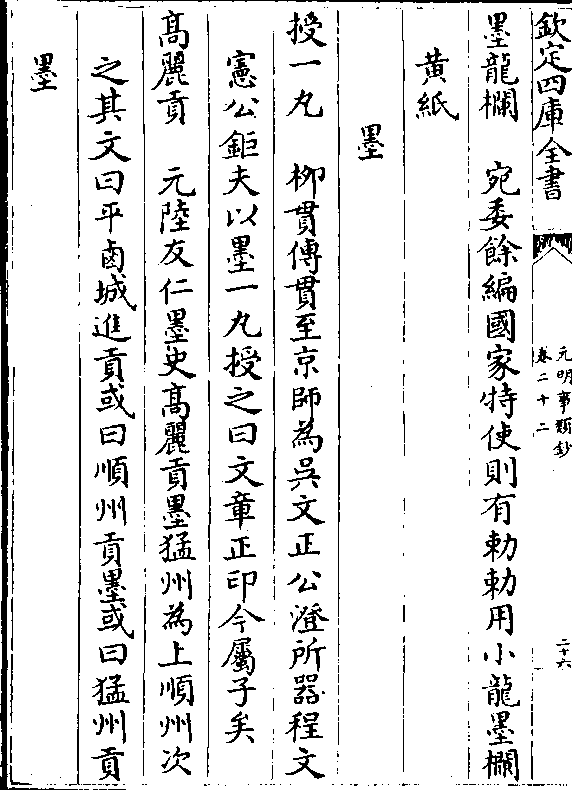 欽定四庫全書
元明事類鈔
卷二十二
二十六
墨龍欄　宛委餘編國家特使則有勅勅用小龍墨欄
黄紙
墨
授一丸　柳貫傳貫至京師為吳文正公澄所器程文
憲公鉅夫以墨一丸授之曰文章正印今屬子矣
髙麗貢　元陸友仁墨史髙麗貢墨猛州為上順州次
之其文曰平鹵城進貢或曰順州貢墨或曰猛州貢
墨